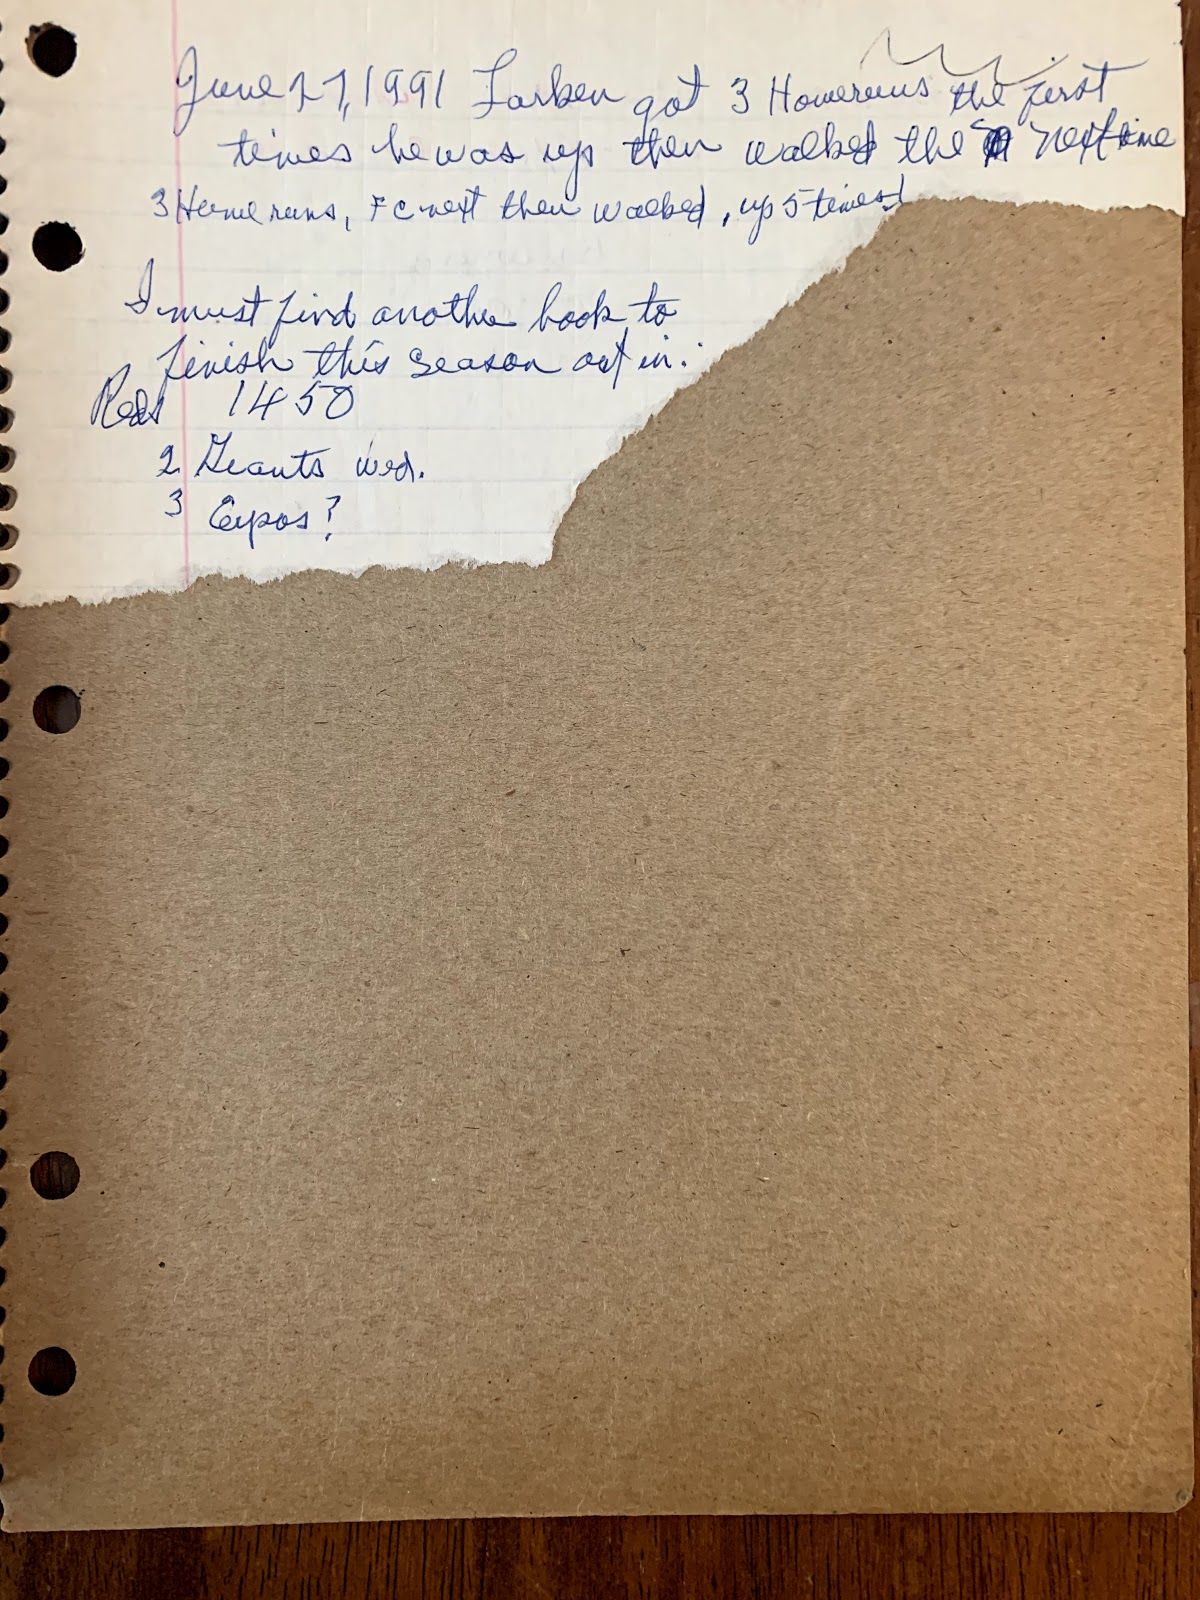 June 27, 1991 Larken got 3 Homeruns the first
times he was up then walked the next time
3 Home runs, FC next then walked, up 5 times!
I must find another book to
finish this season out in.
Reds 1450
2 Giants wed.
3 Expos?